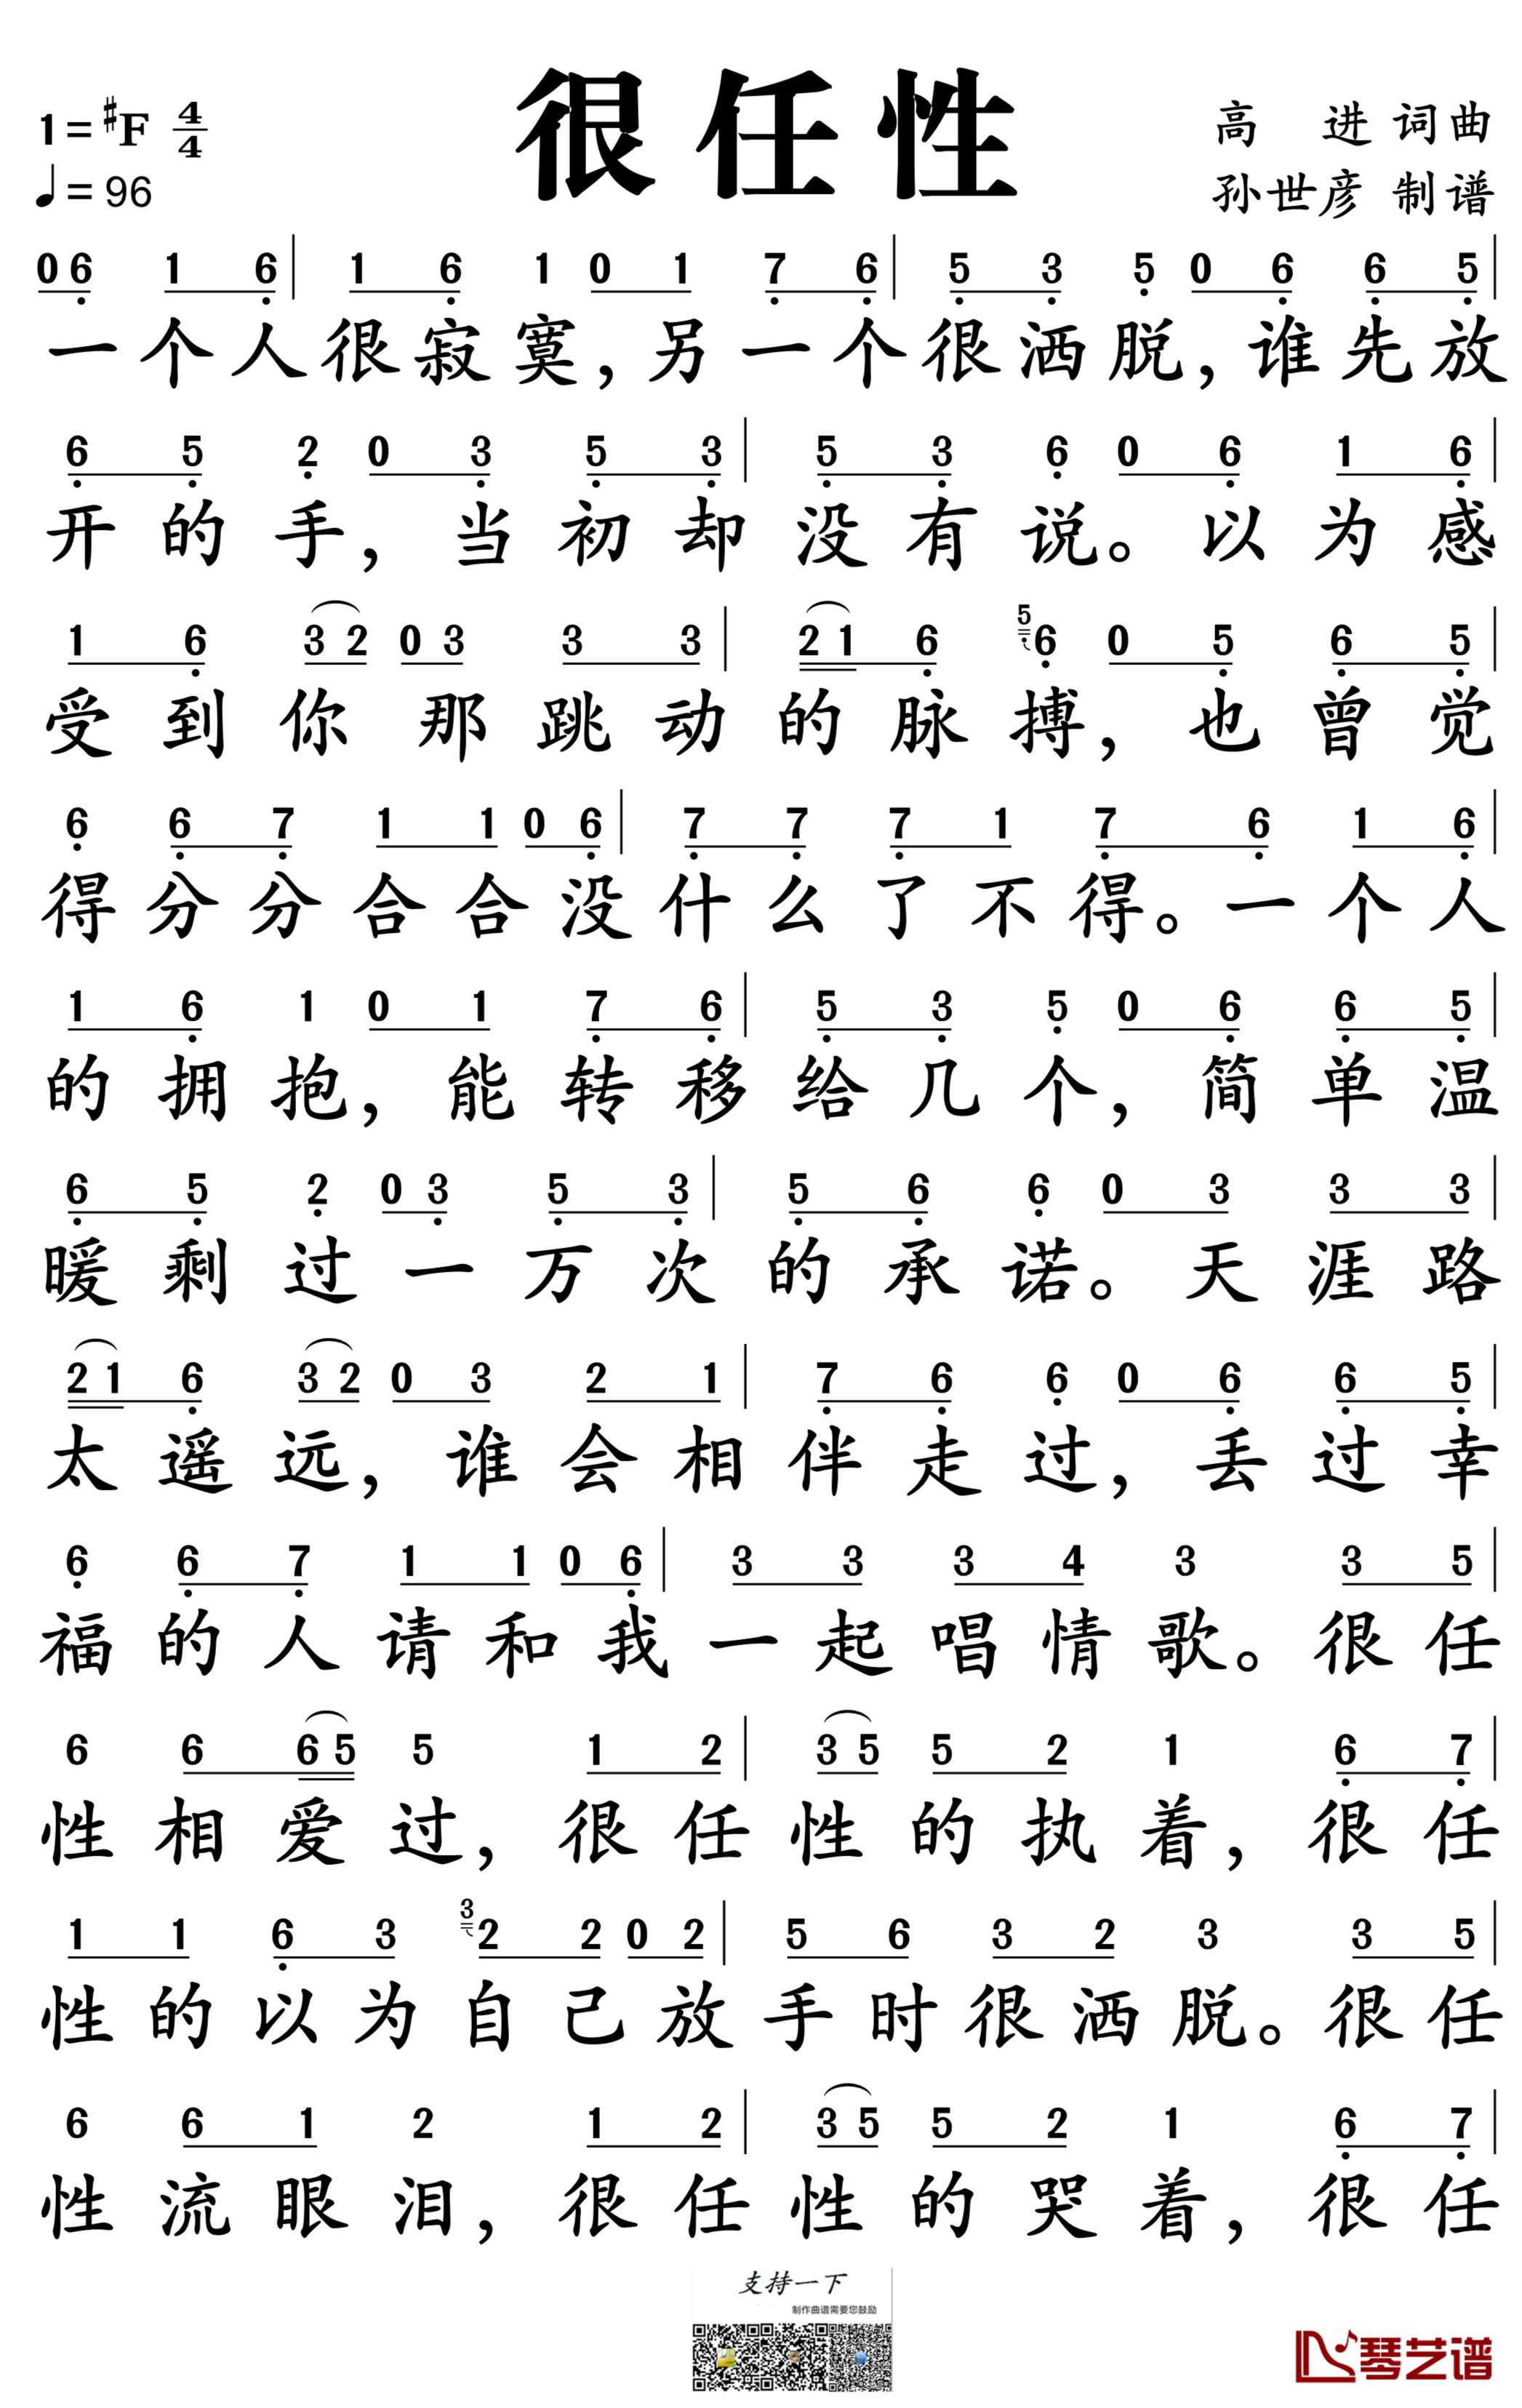 很任性
1=♯F 4/4
♩=96
高 进 词曲
孙世彦 制谱
0 6̣ 1 6̣ | 1 6̣ 1 0 1 7̣ 6̣ | 5̣ 3̣ 5̣ 0 6̣ 6̣ 5̣ |
一个人很寂寞,另一个很洒脱,谁先放
6̣ 5̣ 2̣ 0 3̣ 5̣ 3̣ | 5̣ 3̣ 6̣ 0 6̣ 1 6̣ |
开的手,当初却没有说。以为感
1 6̣ 3 2 0 3 3 3 | 2 1 6̣ 5̣ 6̣ 0 5̣ 6̣ 5̣ |
受到你那跳动的脉搏,也曾觉
6̣ 6̣ 7̣ 1 1 0 6̣ | 7̣ 7̣ 7̣ 1 7̣ 6̣ 1 6̣ |
得分分合合没什么了不得。一个人
1 6̣ 1 0 1 7̣ 6̣ | 5̣ 3̣ 5̣ 0 6̣ 6̣ 5̣ |
的拥抱,能转移给几个,简单温
6̣ 5̣ 2̣ 0 3̣ 5̣ 3̣ | 5̣ 6̣ 6̣ 0 3 3 3 |
暖剩过一万次的承诺。天涯路
2 1 6̣ 3 2 0 3 2 1 | 7̣ 6̣ 6̣ 0 6̣ 6̣ 5̣ |
太遥远,谁会相伴走过,丢过幸
6̣ 6̣ 7̣ 1 1 0 6̣ | 3 3 3 4 3 3 5 |
福的人请和我一起唱情歌。很任
6 6 6 5 5 1 2 | 3 5 5 2 1 6̣ 7̣ |
性相爱过,很任性的执着,很任
1 1 6̣ 3 3 2 2 0 2 | 5 6 3 2 3 3 5 |
性的以为自己放手时很洒脱。很任
6 6 1 2 1 2 | 3 5 5 2 1 6̣ 7̣ |
性流眼泪,很任性的哭着,很任
支持一下
制作曲谱需要您鼓励
琴艺谱